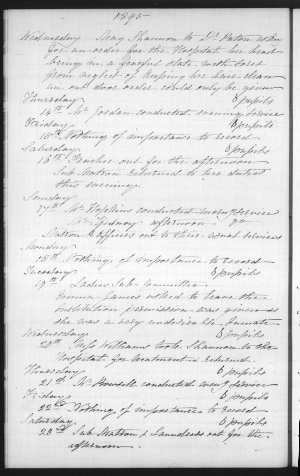 1895
Wednesday May Shannon to Dr. asking
for an order for the Hospital her head
being in a fearful state with sores
from neglect of keeping her hair clean
an out door order could only be given
Thursday 6 pupils
14th Mr. Jordan conducted evening service
Friday 6 pupils
15th Nothing of importance to record
Saturday 6 pupils
16th Teacher out for the afternoon
Sub Matron returned to her duties
this evening.
Sunday
17th Mr. Hopkins conducted morng service
Mr. Sidney afternoon Do
Matron & Officers out to their usual services
Monday
18th Nothing of importance to record
Tuesday 6 pupils
19th Ladies Sub Committee
Emma James asked to leave the
institution permission was given as
she was a very undesirable inmate
Wednesday 6 pupils
20th Miss Williams took Shannon to the
Hospital for treatment & returned.
Thursday 6 pupils
21st Mr. Howell conducted eveng service
Friday 6 pupils
22nd Nothing of importance to record
Saturday 6 pupils
23rd Sub Matron & Saunders out for the
afternoon.